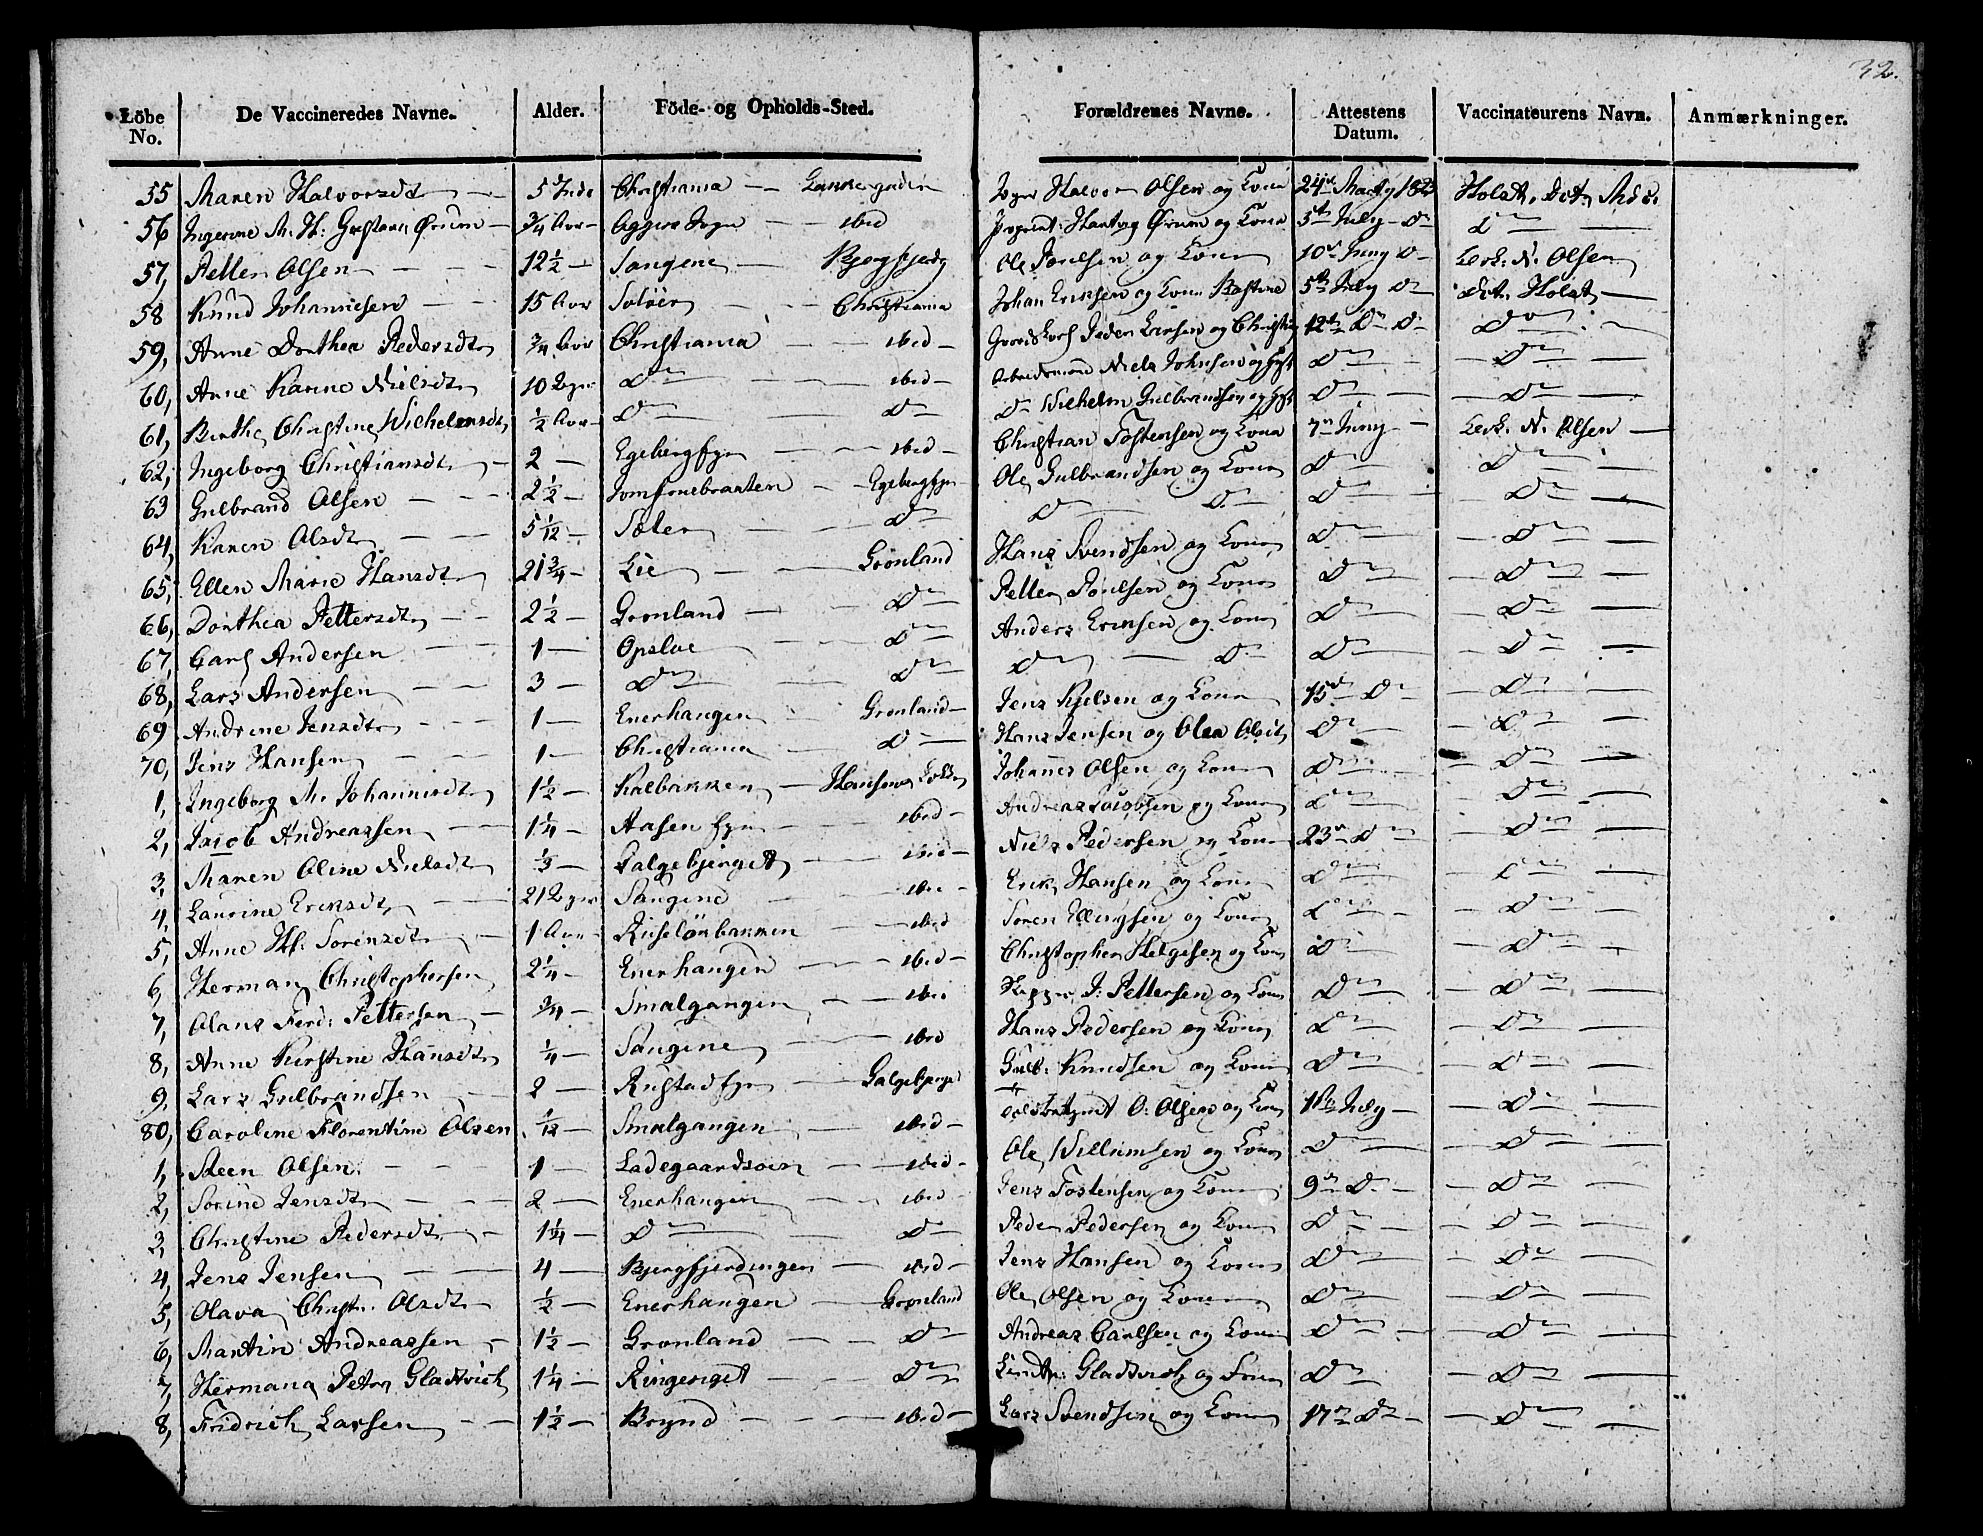 32.
Löbe No. De Vaccineredes Navne. Alder. Föde- og Opholds-Sted. Forældrenes Navne. Attestens Datum. Vaccinateurens Navn. Anmærkninger.
55 Maren Halvorsdt — Christiania — Halvor Olsen og Kone 24de Holst
56 Ingerine M. H. Ørum — 3/4 Aar — Aggers Sogn — ibid Ørum og Kone 5te July — Do Do —
57, Petter Olsen — 12 1/2 — Sangene — Ole Poulsen og Kone 10de Juny Do N. Olsen
58 Knud Johannesen — 15 Aar Soløer — Christiania Johan Eriksen og Kone 5te July Do Holst —
59, Anne Dorthea Pedersdt 3/4 Aar Christiania — ibid — Peder Larsen og 12te Do Do Do —
60, Anne Karine Nielsdt 10 Do — ibid — Arbeidsmand Niels Johnsen og Do — — Do —
61, Birthe Christine Wilhelmsdt 1/2 Aar — Do — Do — Do Wilhelm Gulbrandsen og Do — — Do —
62, Ingeborg Christiansdt — 2 — Egeberg — ibid — Christian Tostensen og Kone 7de Juny — N. Olsen —
63 Gulbrand Olsen — 2 1/2 — Jomfruebraaten — Egeberg Ole Gulbrandsen og Kone Do — Do —
64, Karen Olsdt — 5/12 — — Do Do — Do — Do — — Do —
65, Ellen Marie Hansdt 21 3/4 — Lie — Grønland Hans Svendsen og Kone Do — — Do —
66, Dorthea Pettersdt — 2 1/2 — Grønland — Do Petter Poulsen og Kone Do — — Do —
67, Carl Andersen — 1 — Opsloe — Do Anders Eriksen og Kone Do — — Do —
68, Lars Andersen — 3 — Do — Do Do — Do — Do — — Do —
69 Andrine Jensdt — 1 — Enerhaugen — Grønland — Jens og Kone 15de Do — Do —
70, Jens Hansen — 1 — Christiania — Do — Hans Jensen og Olea Do — — Do —
1, Ingeborg M. Johannesdt 1 1/2 — Kalbakken — Johannes Olsen og Kone Do — — Do —
2, Jacob Andreassen — 1 1/4 — Aasen — ibid — Andreas Jacobsen og Kone Do — — Do —
3, Maren Oline Nielsdt 1/3 — Galgebjerget — ibid — Niels Pedersen og Kone 23de Do — Do —
4, Laurine Eriksdt — Sangene — ibid — Erik Hansen og Kone Do — — Do —
5, Anne M. Sørensdt — 1 Aar — Riiseløkbakken — ibid Søren Ellingsen og Kone Do — — Do —
6, Herman Christophersen 2 1/4 — Enerhaugen — ibid — Christopher Helgesen og Kone Do — Do —
7, Olaus Ferd: Pettersen — 3/4 — Smalgangen — ibid J: Pettersen og Kone Do — — Do —
8, Anne Kirstine Hansdt 1/4 — Sangene — ibid Hans Pedersen og Kone Do — — Do —
9, Lars Gulbrandsen — 2 — Rustad — Galgebjerget Gulb: Knudsen og Kone Do — — Do —
80, Caroline Florentine Olsen — Smalgangen — ibid — O: Olsen og Kone July — — Do —
1, Steen Olsen — 1 — Ladegaardsøen — ibid — Ole Willumsen og Kone Do — — Do —
2, Sørine Jensdt — 2 — Enerhaugen — ibid — Jens Tostensen og Kone 9de Do — — Do —
3, Christine Pedersdt — 1 1/4 — Do — Do — Peder Pedersen og Kone Do — — Do —
4, Jens Jensen — 4 — Bjergfjerdingen — ibid — Jens Hansen og Kone Do — — Do —
5, Olava Christ: Olsdt — 1/2 — Enerhaugen — Grønland Ole Olsen og Kone Do — — Do —
6, Martin Andreassen — 1 1/2 — Grønland — Do — Andreas Carlsen og Kone Do — — Do —
7, Hermana Petra Gladtvich 1 1/4 — Ringeriget — Do Gladtvich og Do — — Do —
8, Fridrich Larsen — 1 1/2 — Brynd — ibid — Lars Svendsen og Kone 17de Do — — Do —